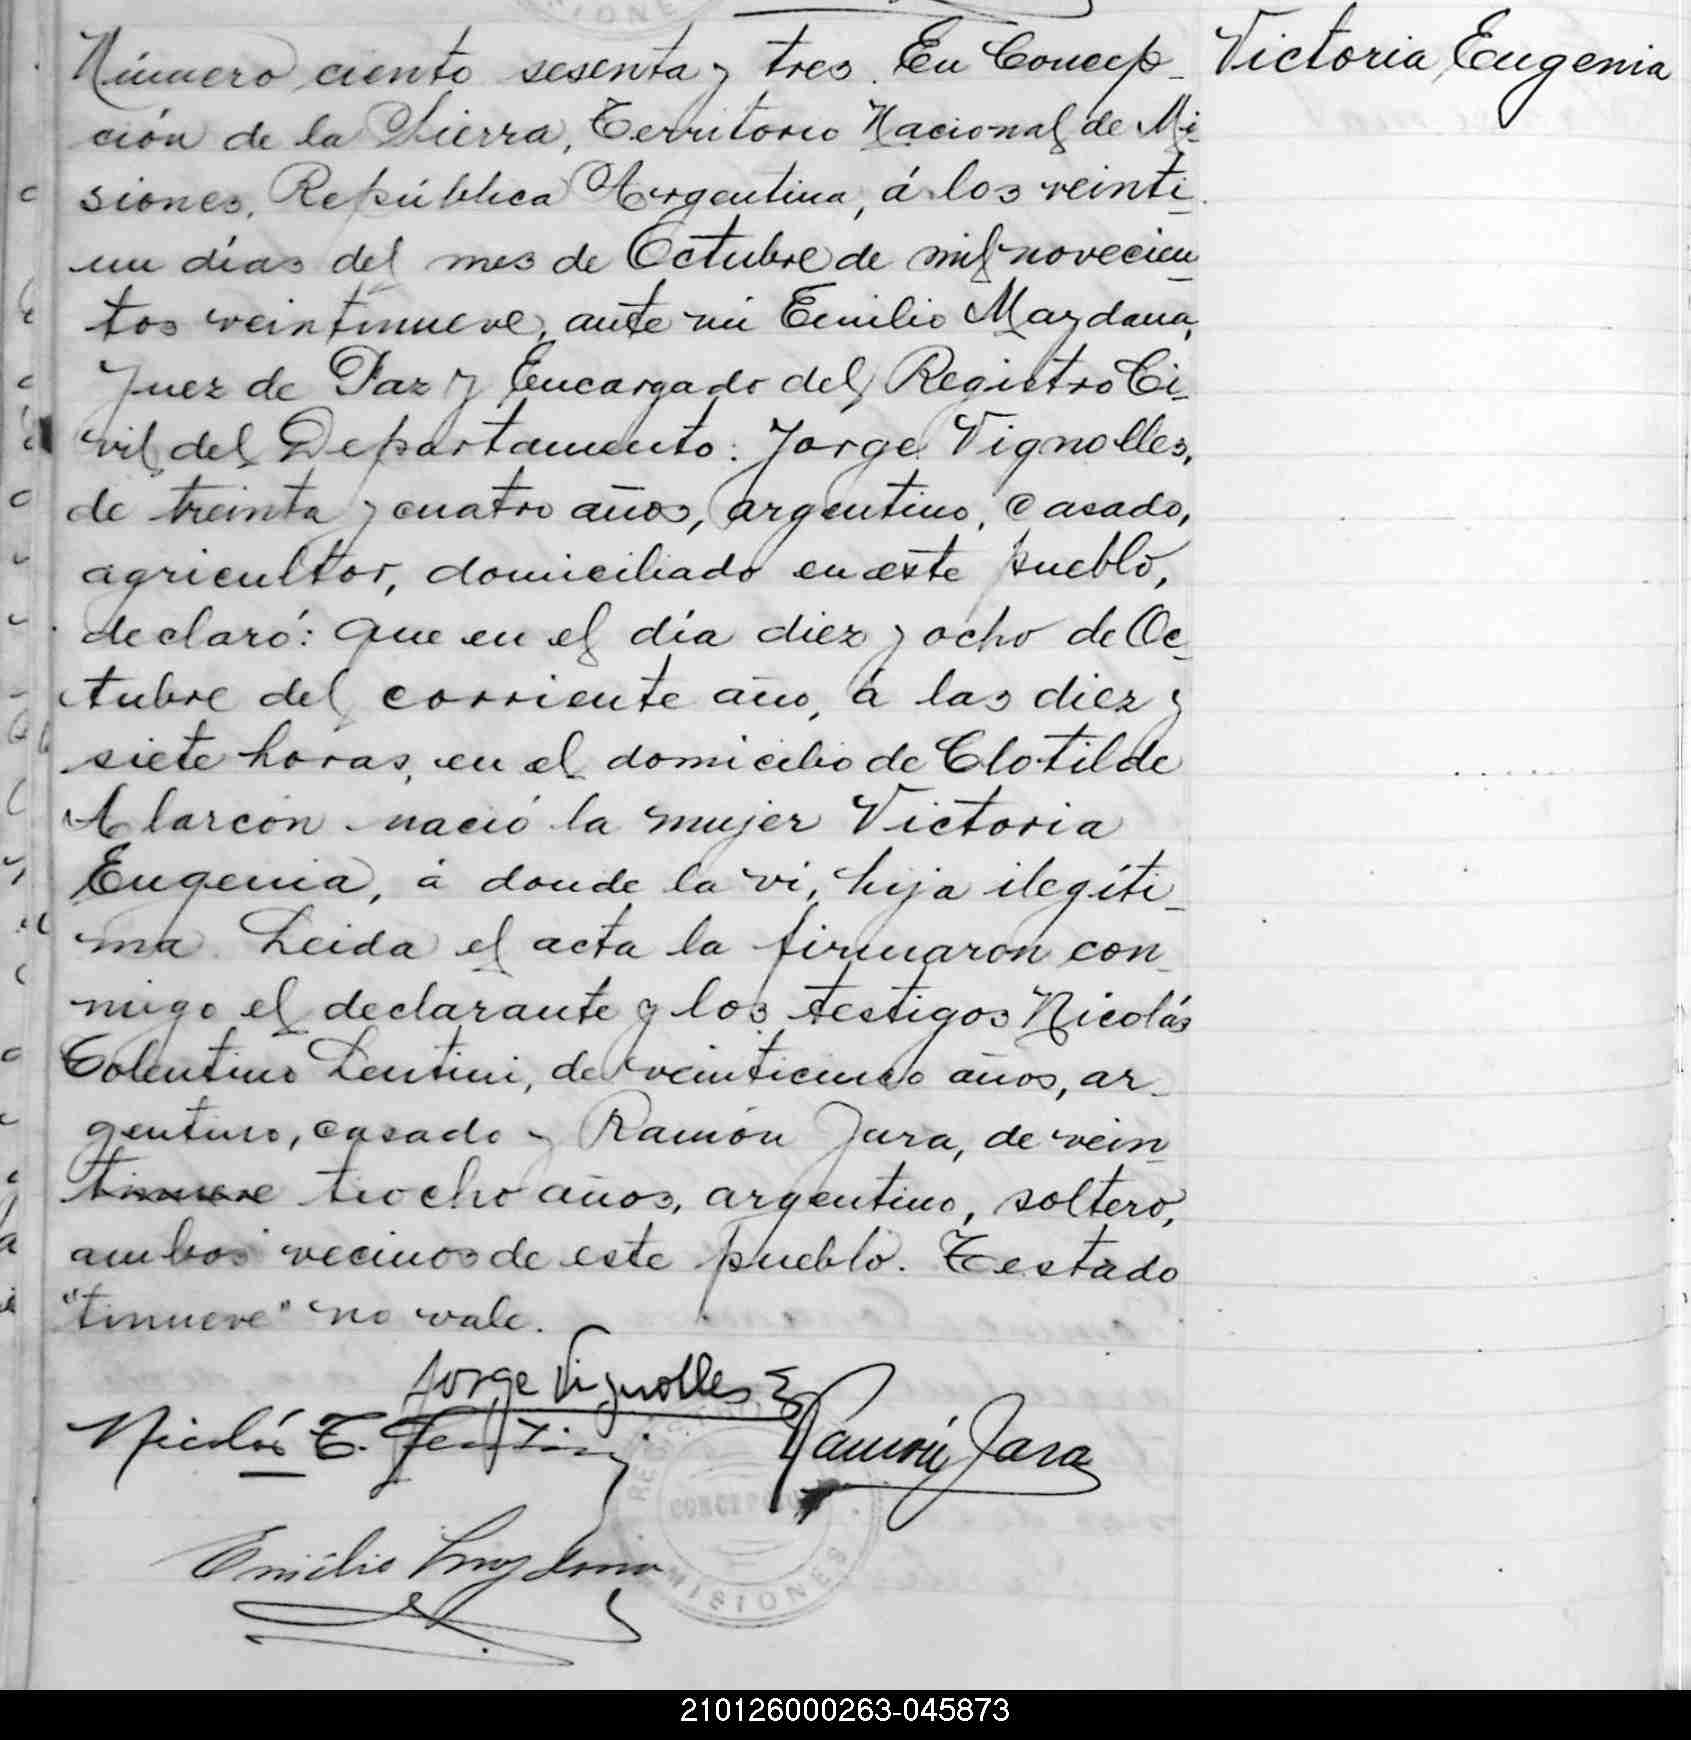 Victoria Eugenia
Número ciento sesenta y tres. En Concep-
ción de la Sierra, Territorio Nacional de Mi-
siones, República Argentina, á los veinti-
un días del mes de Octubre de mil novecien-
tos veintinueve, ante mi Emilio Maydana,
Juez de Paz y Encargado del Registro Ci-
vil del Departamento: Jorge Vignolles,
de treinta y cuatro años, argentino, casado,
agricultor, domiciliado en este pueblo,
declaró: Que en el día diez y ocho de Oc-
tubre del corriente año, á las diez y
siete horas, en el domicilio de Clotilde
Alarcón nació la mujer Victoria
Eugenia, á donde la vi, hija ilegíti-
ma. Leida el acta la firmaron con-
migo el declarante y los testigos Nicolás
Tolentino Lentini, de veinticinco años, ar-
gentino, casado y Ramón Jara, de vein-
tinueve tiocho años, argentino, soltero,
ambos vecinos de este pueblo. Testado
"tinueve" no vale.
Jorge Vignolles
Nicolás T. Lentini
Ramón Jara
Emilio Maydana
CONCEPCION
MISIONES
210126000263-045873